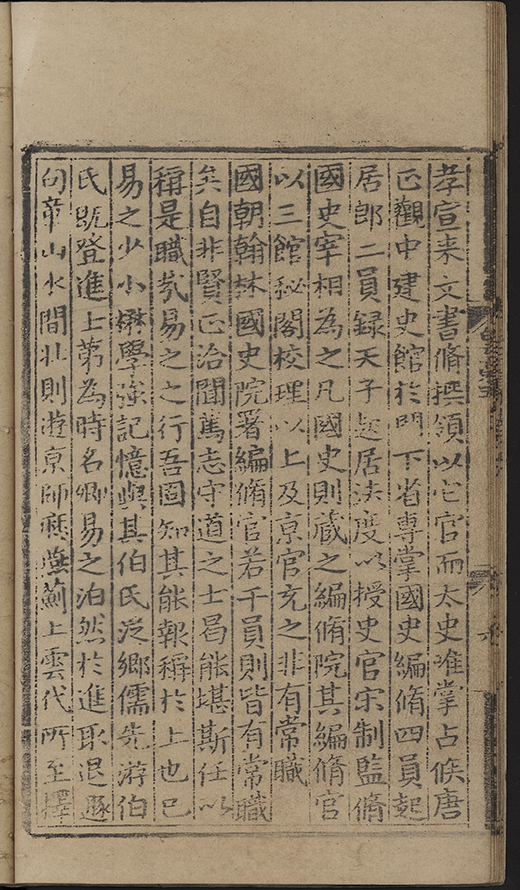 孝宣来文書脩撰領以它官而太史唯掌占候唐
正觀中建史館於門下省專掌國史編脩四員起
居郎二員録天子起居法度以授史官宋制監脩
國史宰相為之凡國史則蔵之編脩院其編脩官
以三館秘閣校理以上及亰官充之非有常職
國朝翰林國史院署編脩官若干員則皆有常職
矣自非賢正洽聞篤志守道之士曷能堪斯任以
稱是職哉易之之行吾固知其能報稱於上也已
易之少小嗜學強記憶與其伯氏泛鄉儒先游伯
氏既登進上第為時名卿易之泊然於進取退遯
句章山水間壮則遊亰師薊上雲代所至擇